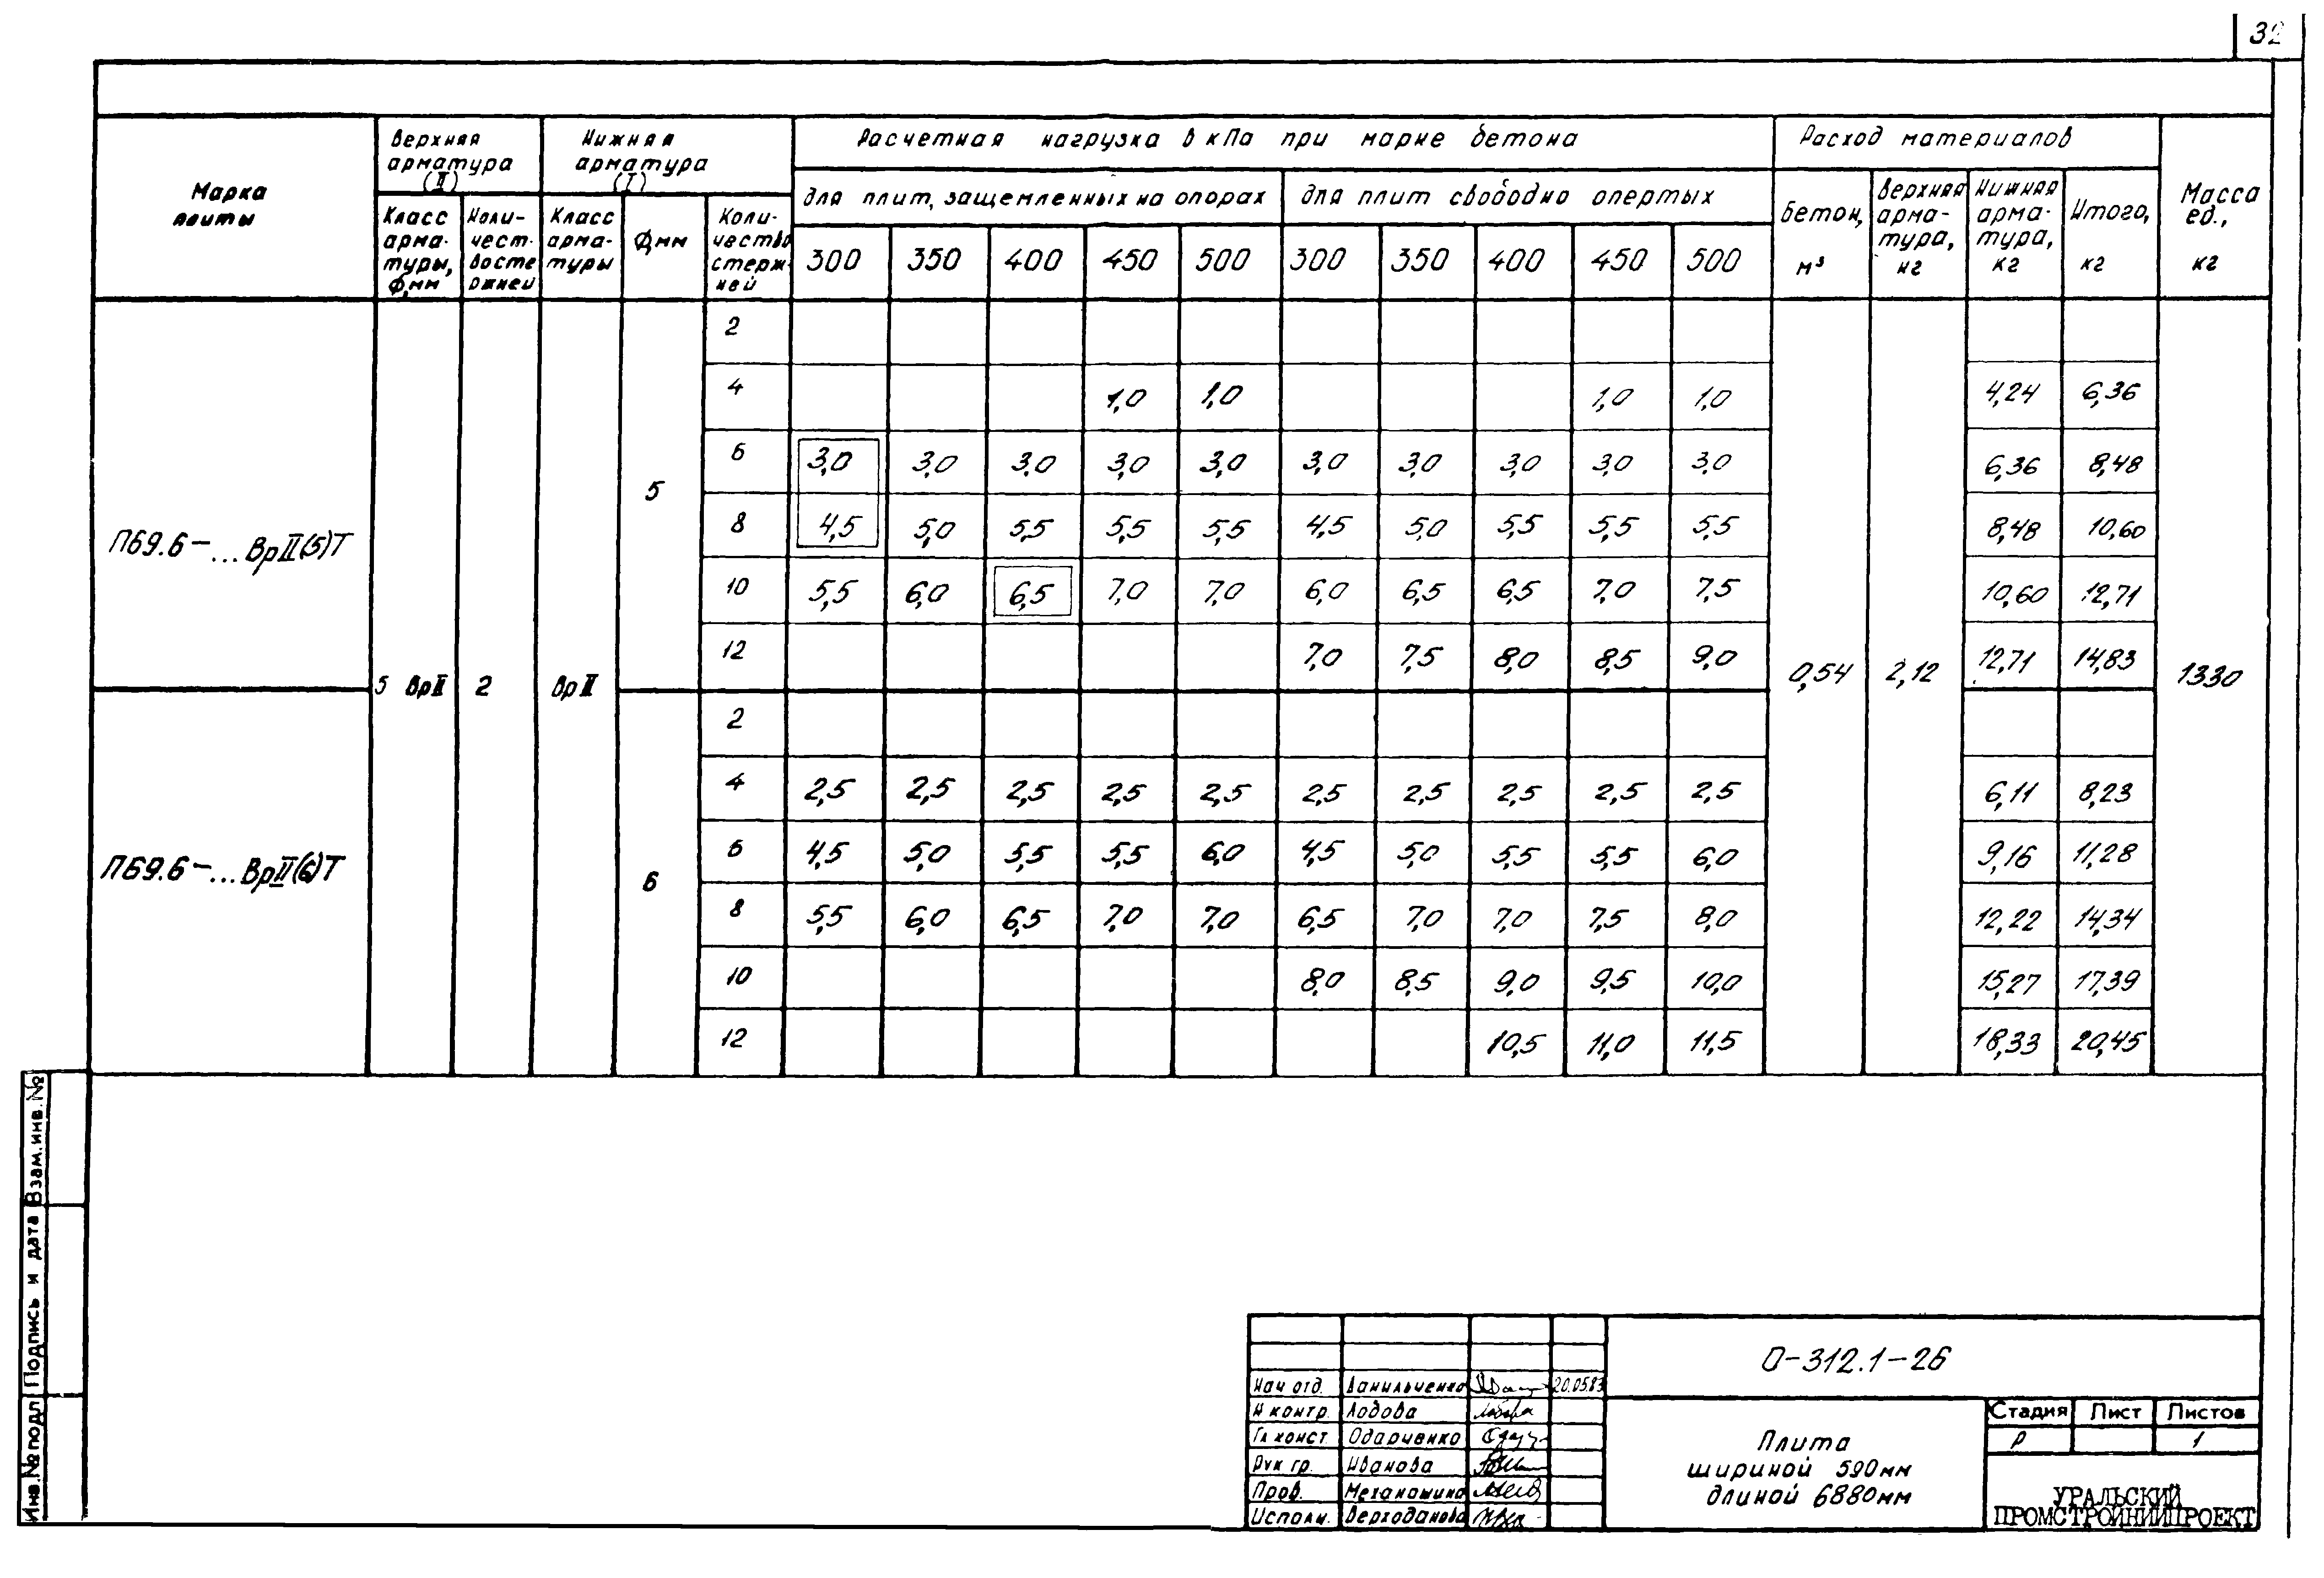 32
Марка плиты
Верхняя арматура (II)
Нижняя арматура (I)
Расчетная нагрузка в кПа при марке бетона
Расход материалов
Масса ед., кг
для плит, защемленных на опорах
для плит свободно опертых
Бетон, м³
Верхняя арма-тура, кг
Нижняя арма-тура, кг
Итого, кг
Класс арма-туры, ф,мм
Коли-чест-восте ржней
Класс арма-туры
Ф,мм
Коли-чество стерж-ней
300 350 400 450 500 300 350 400 450 500
2
4 1,0 1,0 1,0 1,0 4,24 6,36
6 3,0 3,0 3,0 3,0 3,0 3,0 3,0 3,0 3,0 3,0 6,36 8,48
5
П69.6-...ВрII(5)Т
8 4,5 5,0 5,5 5,5 5,5 4,5 5,0 5,5 5,5 5,5 8,48 10,60
10 5,5 6,0 6,5 7,0 7,0 6,0 6,5 6,5 7,0 7,5 10,60 12,71
12 7,0 7,5 8,0 8,5 9,0 12,71 14,83
5 ВрII 2 ВрII 0,54 2,12 1330
2
4 2,5 2,5 2,5 2,5 2,5 2,5 2,5 2,5 2,5 2,5 6,11 8,23
6 4,5 5,0 5,5 5,5 6,0 4,5 5,0 5,5 5,5 6,0 9,16 11,28
П69.6-...ВрII(6)Т
6
8 5,5 6,0 6,5 7,0 7,0 6,5 7,0 7,0 7,5 8,0 12,22 14,34
10 8,0 8,5 9,0 9,5 10,0 15,27 17,39
12 10,5 11,0 11,5 18,33 20,45
Взам.инв.№
Подпись и дата
Инв.№ подл
О-312.1-26
Нач отд. Данильченко 20.05.83
Н контр. Лодова
Гл конст Одарченко
Рук гр. Иванова
Пров. Механошина
Исполн. Верходанова
Плита
шириной 590мм
длиной 6880мм
Стадия Лист Листов
Р 1
УРАЛЬСКИЙ
ПРОМСТРОЙНИИПРОЕКТ